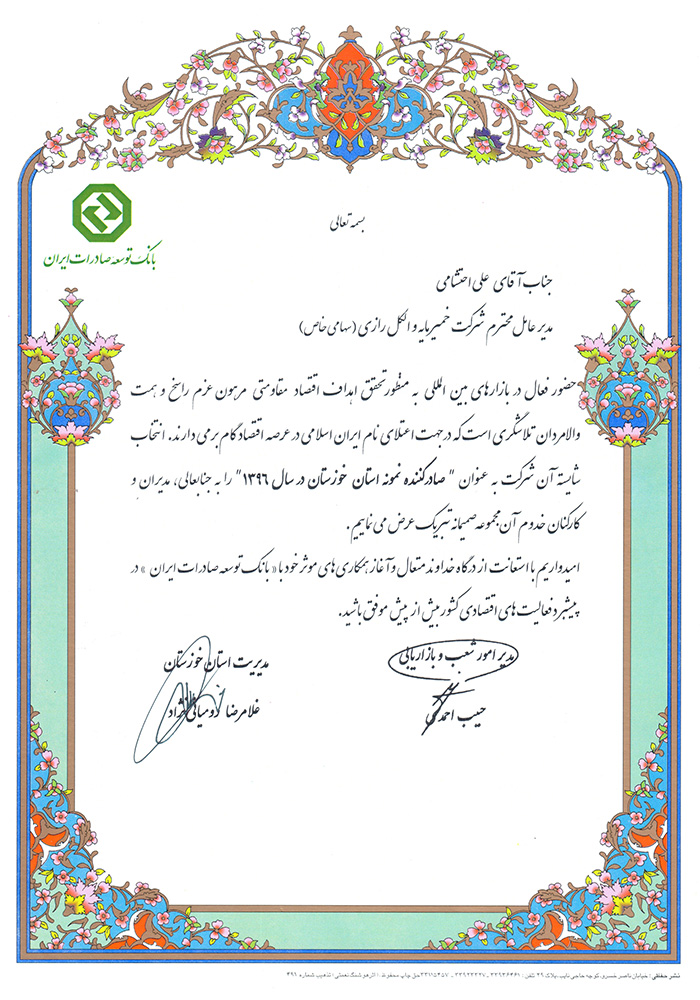 بسمه تعالی
بانک توسعه صادرات ایران
جناب آقای علی احتشامی
مدیر عامل محترم شرکت خمیرمایه و الکل رازی (سهامی خاص)
حضور فعال در بازارهای بین المللی به منظور تحقق اهداف اقتصاد مقاومتی مرهون عزم راسخ و همت
والامردان تلاشگری است که در جهت اعتلای نام ایران اسلامی در عرصه اقتصاد گام بر می دارند. انتخاب
شایسته آن شرکت به عنوان " صادرکننده نمونه استان خوزستان در سال ۱۳۹۶" را به جنابعالی، مدیران و
کارکنان خدوم آن مجموعه صمیمانه تبریک عرض می نماییم.
امیدواریم با استعانت از درگاه خداوند متعال و آغاز همکاری های موثر خود با « بانک توسعه صادرات ایران » در
پیشبرد فعالیت های اقتصادی کشور بیش از پیش موفق باشید.
مدیر امور شعب و بازاریابی
حبیب احمدی
مدیریت استان خوزستان
غلامرضا رومیانی نژاد
نشر حقیقی : خیابان ناصر خسرو، کوچه حاجی نایب، پلاک ۲۹ تلفن : ۳۳۹۳۶۴۶۱ - ۳۳۹۲۳۲۴۷ - ۳۳۱۱۵۴۵۷ حق چاپ محفوظ. | اثر هوشنگ نعمتی | تذهیب شماره ۴۹۶